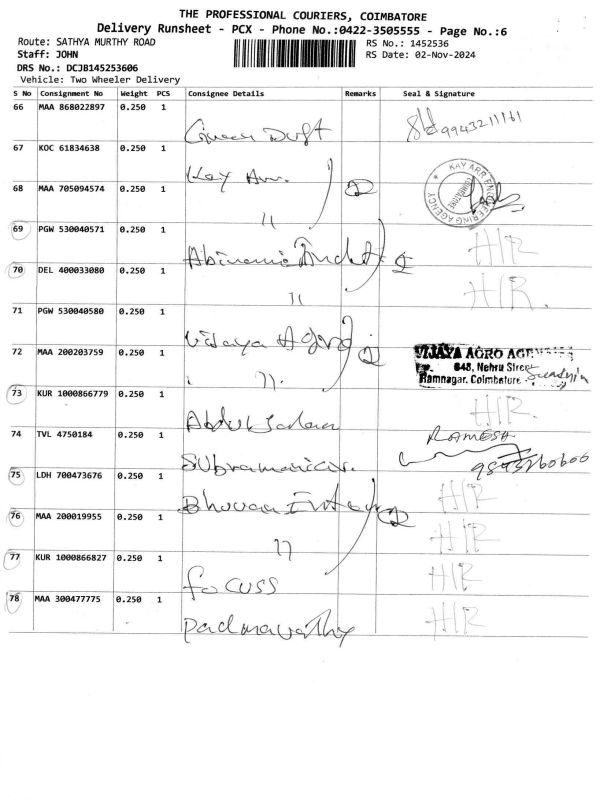 THE PROFESSIONAL COURIERS, COIMBATORE
Delivery Runsheet - PCX - Phone No.:0422-3505555 - Page No.:6
Route: SATHYA MURTHY ROAD RS No.: 1452536
Staff: JOHN RS Date: 02-Nov-2024
DRS No.: DCJB145253606
Vehicle: Two Wheeler Delivery
S No Consignment No Weight PCS Consignee Details Remarks Seal & Signature
66 MAA 868022897 0.250 1 9943211161
67 KOC 61834638 0.250 1 Kay KAY ARR ENGINEERING AGENCY COIMBATORE
68 MAA 705094574 0.250 1 11 2
69 PGW 530040571 0.250 1 Abirami H/R
70 DEL 400033080 0.250 1 11 2 H/R.
71 PGW 530040580 0.250 1 Vijaya Agro 2
72 MAA 200203759 0.250 1 11. VIJAYA AGRO
648, Nehru Street
Ramnagar, Coimbatore
73 KUR 1000866779 0.250 1 Abdul H/R.
74 TVL 4750184 0.250 1 RAMESH
75 LDH 700473676 0.250 1 H/R
76 MAA 200019955 0.250 1 11 2 H/R
77 KUR 1000866827 0.250 1 focuss H/R
78 MAA 300477775 0.250 1 Padmavathy H/R